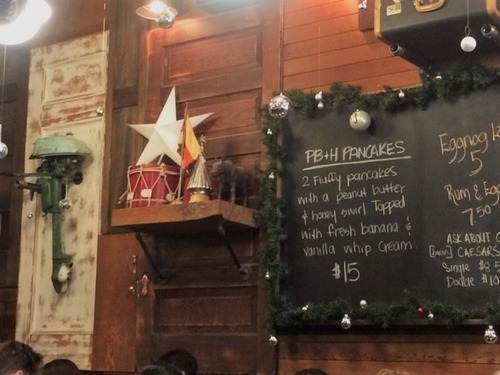 PB+H PANCAKES
2 Fluffy pancakes
with a peanut butter
& honey swirl Topped
with fresh banana &
vanilla whip cream
$15
Eggnog
5
Rum & Egg
7.50
ASK ABOUT
CAESARS
Single $8.5
Double $10